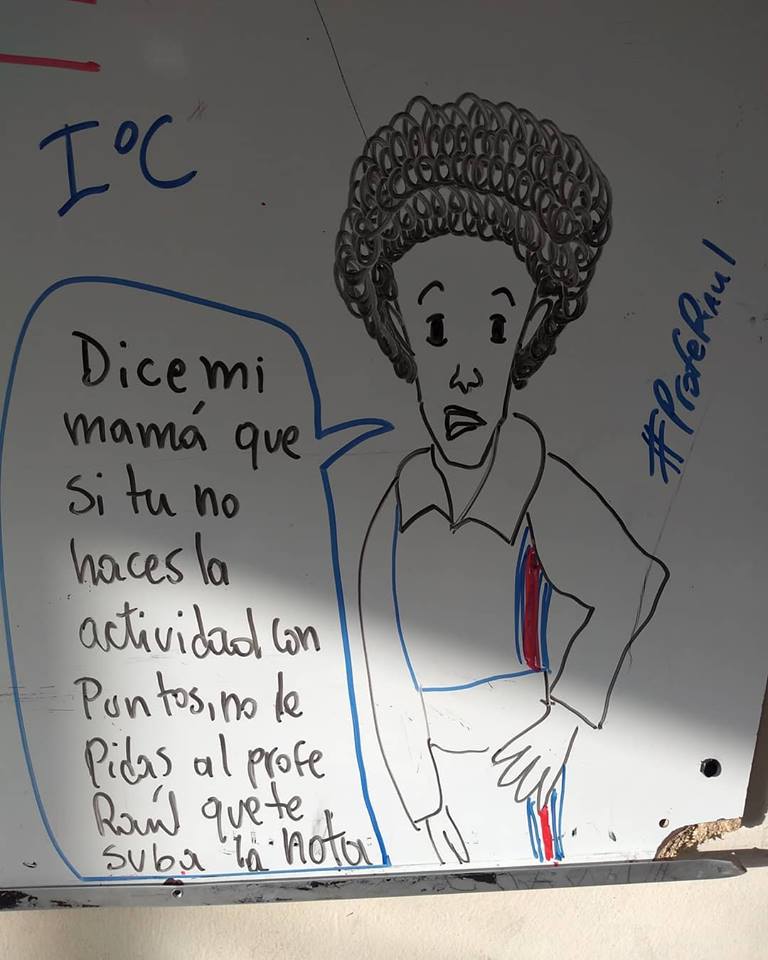 I°C
Dice mi
mamá que
si tu no
haces la
actividad con
Puntos, no le
Pidas al profe
Raúl que te
suba la nota
#ProfeRaul